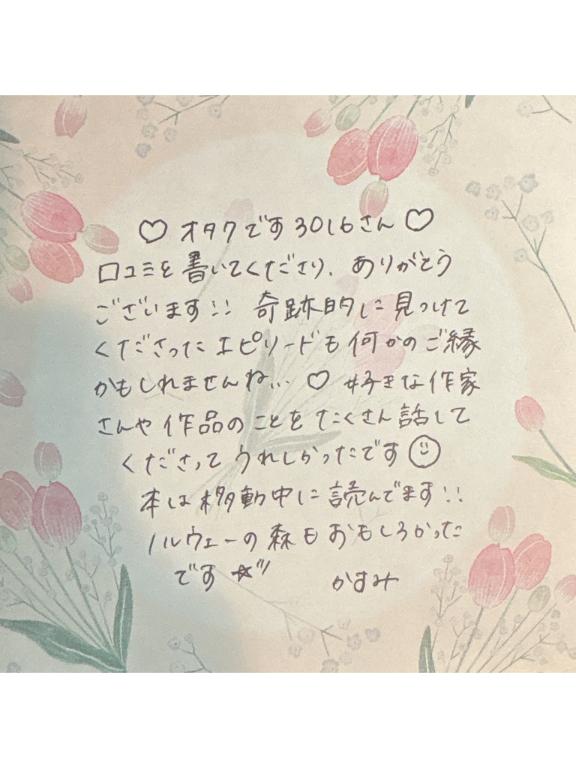 ♡ オタクです3016さん ♡
口コミを書いてくださり、ありがとう
ございます!! 奇跡的に見つけて
くださったエピソードも何かのご縁
かもしれませんね… ♡ 好きな作家
さんや作品のことをたくさん話して
くださって うれしかったです☺
本は移動中に読んでます!!
ノルウェーの森もおもしろかった
です☆彡 かすみ